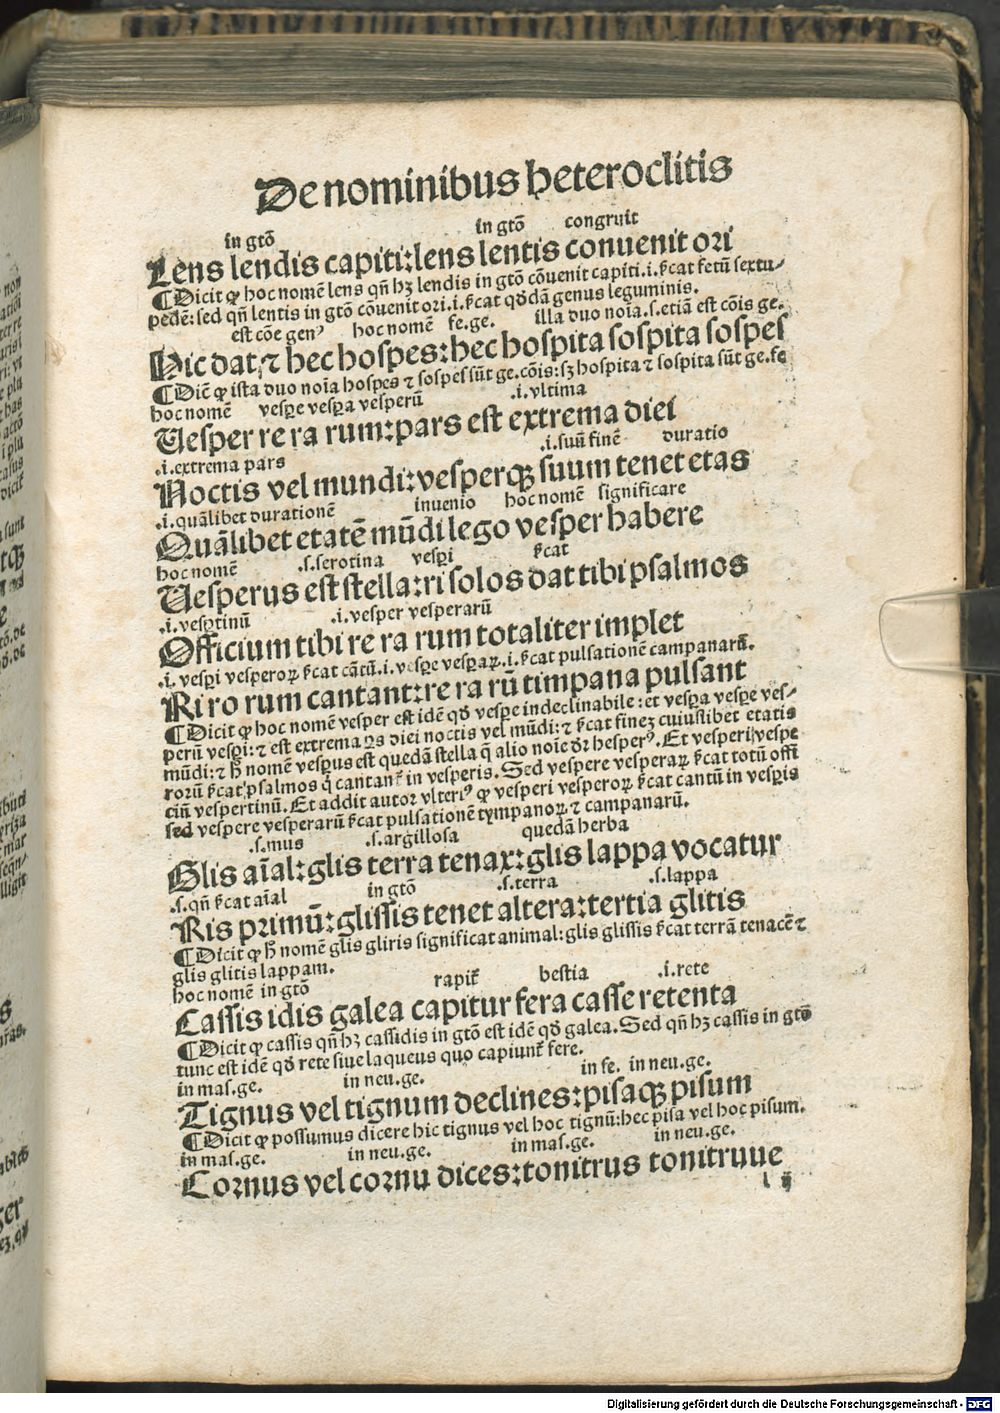 De nominibus heteroclitis
in gtō in gtō congruit
Lens lendis capiti: lens lentis conuenit ori
¶Dicit ꝙ hoc nomē lens qn̄ hꝫ lendis in gtō cōuenit capiti.i. sͨcat fetū sextu⸗
pedē: sed qn̄ lentis in gtō cōuenit ori.i. sͨcat qd̄dā genus leguminis.
est cōe genꝰ hoc nomē fe.ge. illa duo noīa.s.etiā est cōis ge.
Hic dat, ⁊ hec hospes: hec hospita sospita sospes
¶Diē ꝙ ista duo noīa hospes ⁊ sospes sūt ge.cōis: sꝫ hospita ⁊ sospita sūt ge.fe
hoc nomē vesꝑe vesꝑa vesperū .i.vltima
Uesper re ra rum: pars est extrema diei
.i.extrema pars .i.suū finē duratio
Noctis vel mundi: vesperqꝫ suum tenet etas
.i.quālibet durationē inuenio hoc nomē significare
Quālibet etatē mūdi lego vesper habere
hoc nomē .s.serotina vesꝑi sͨcat
Uesperus est stella: ri solos dat tibi psalmos
.i.vesꝑtinū .i.vesper vesperarū
Officium tibi re ra rum totaliter implet
.i. vesꝑi vesperoꝝ sͨcat cātū.i. vesꝑe vesꝑaꝝ.i. sͨcat pulsationē campanarū.
Ri ro rum cantant: re ra rū timpana pulsant
¶Dicit ꝙ hoc nomē vesper est idē qd̄ vesꝑe indeclinabile: et vesꝑa vesꝑe ves⸗
perū vesꝑi: ⁊ est extrema ꝑs diei noctis vel mūdi: ⁊ sͨcat fineꝫ cuiuslibet etatis
mūdi: ⁊ h̄ nomē vesꝑus est quedā stella q̄ alio noīe dr̄ hesperꝰ. Et vesperi vespe
rorū sͨcat psalmos qͥ cantant̄ in vesperis. Sed vespere vesperaꝝ sͨcat totū offi
ciū vespertinū. Et addit autor vlteriꝰ ꝙ vesperi vesperoꝝ sͨcat cantū in vesꝑis
sed vespere vesperarū sͨcat pulsationē tympanoꝝ ⁊ campanarū.
.s.mus .s.argillosa quedā herba
Glis aīal: glis terra tenax: glis lappa vocatur
.s.qn̄ sͨcat aīal in gtō .s.terra .s.lappa
Ris primū: glissis tenet altera: tertia glitis
¶Dicit ꝙ h̄ nomē glis gliris significat animal: glis glissis sͨcat terrā tenacē ⁊
glis glitis lappam.
hoc nomē in gtō rapit̄ bestia .i.rete
Cassis idis galea capitur fera casse retenta
¶Dicit ꝙ cassis qn̄ hꝫ cassidis in gtō est idē qd̄ galea. Sed qn̄ hꝫ cassis in gtō
tunc est idē qd̄ rete siue laqueus quo capiunt̄ fere.
in mas.ge. in neu.ge. in fe. in neu.ge.
Tignus vel tignum declines: pisaqꝫ pisum
¶Dicit ꝙ possumus dicere hic tignus vel hoc tignū: hec pisa vel hoc pisum.
in mas.ge. in neu.ge. in mas.ge. in neu.ge.
Cornus vel cornu dices: tonitrus tonitruue
l ij
Digitalisierung gefördert durch die Deutsche Forschungsgemeinschaft - DFG